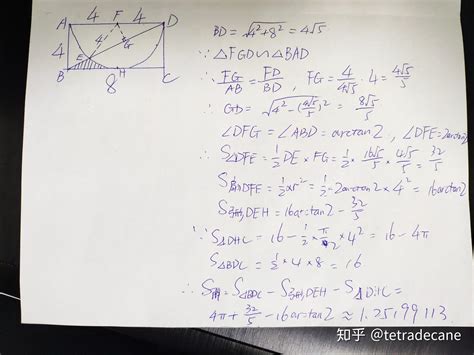 A 4 F 4 D
4 4 G
E
B H C
8
BD = √(4²+8²) = 4√5
∵ △FGD∽△BAD
∴ FG/AB = FD/BD, FG = 4/4√5 · 4 = 4√5/5
∴ GD = √(4²-(4√5/5)²) = 8√5/5
∠DFG = ∠ABD = arctan2, ∠DFE = 2arctan2
∴ S△DFE = 1/2 DE × FG = 1/2 × 16√5/5 × 4√5/5 = 32/5
S扇DFE = 1/2 αr² = 1/2 · 2arctan2 × 4² = 16arctan2
S弓形DEH = 16arctan2 - 32/5
∵ S△DHC = 16 - 1/2 × π/2 × 4² = 16 - 4π
S△BDC = 1/2 × 4 × 8 = 16
∴ S阴 = S△BDC - S弓形DEH - S△DHC =
4π + 32/5 - 16arctan2 ≈ 1.25199113
知乎 @tetradecane